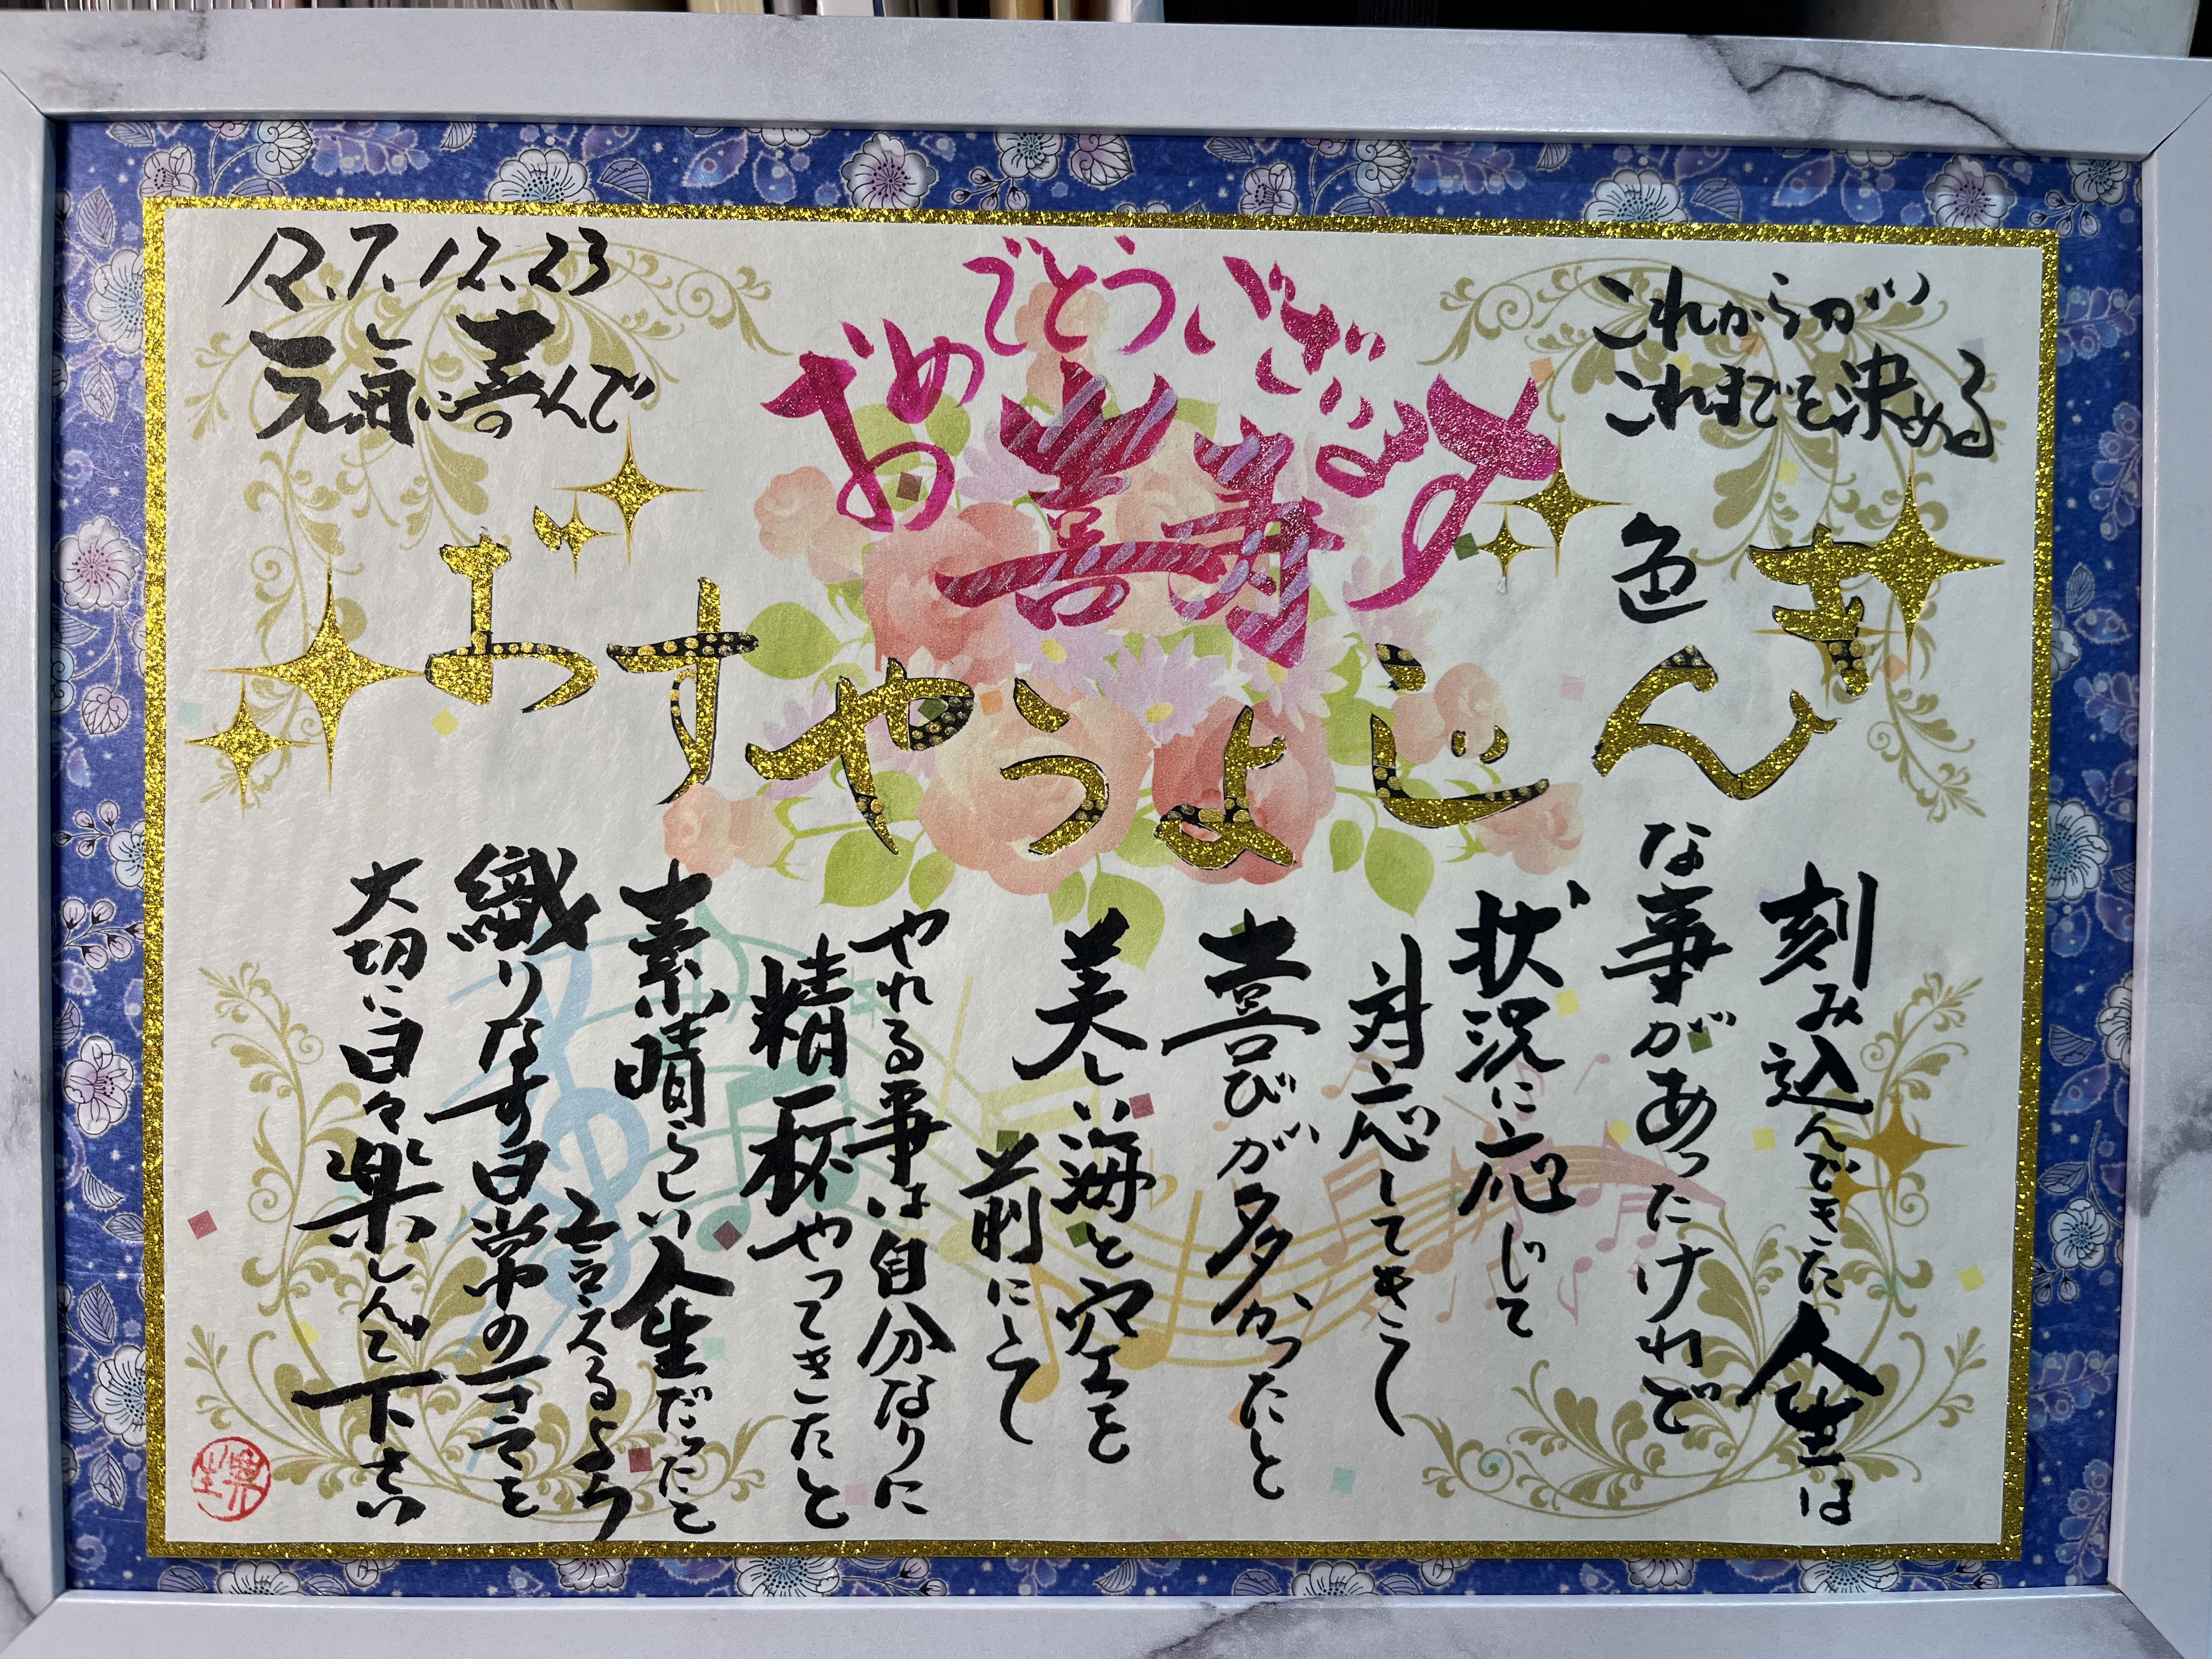 これからが
これまでを決める
おめでとうございます
喜寿
R.7.12.23
元気に喜んで
きんじょうやすお
刻み込んできた人生は
色んな事があったけれど
状況に応じて
対応してきて
喜びが多かったと
美しい海と空を
前にして
やれる事は自分なりに
精一杯やってきたと
素晴らしい人生だったと
言えるよう
織りなす日常の一コマを
大切に日々楽しんで下さい